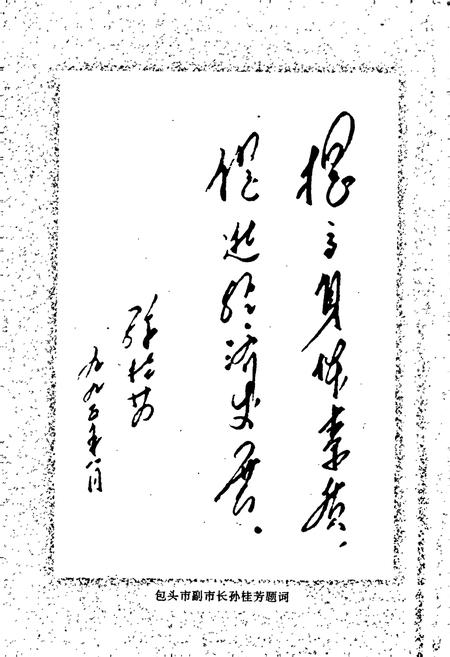 提高身体素质，
促进经济发展。
孙桂芳
九九五年八月
包头市副市长孙桂芳题词